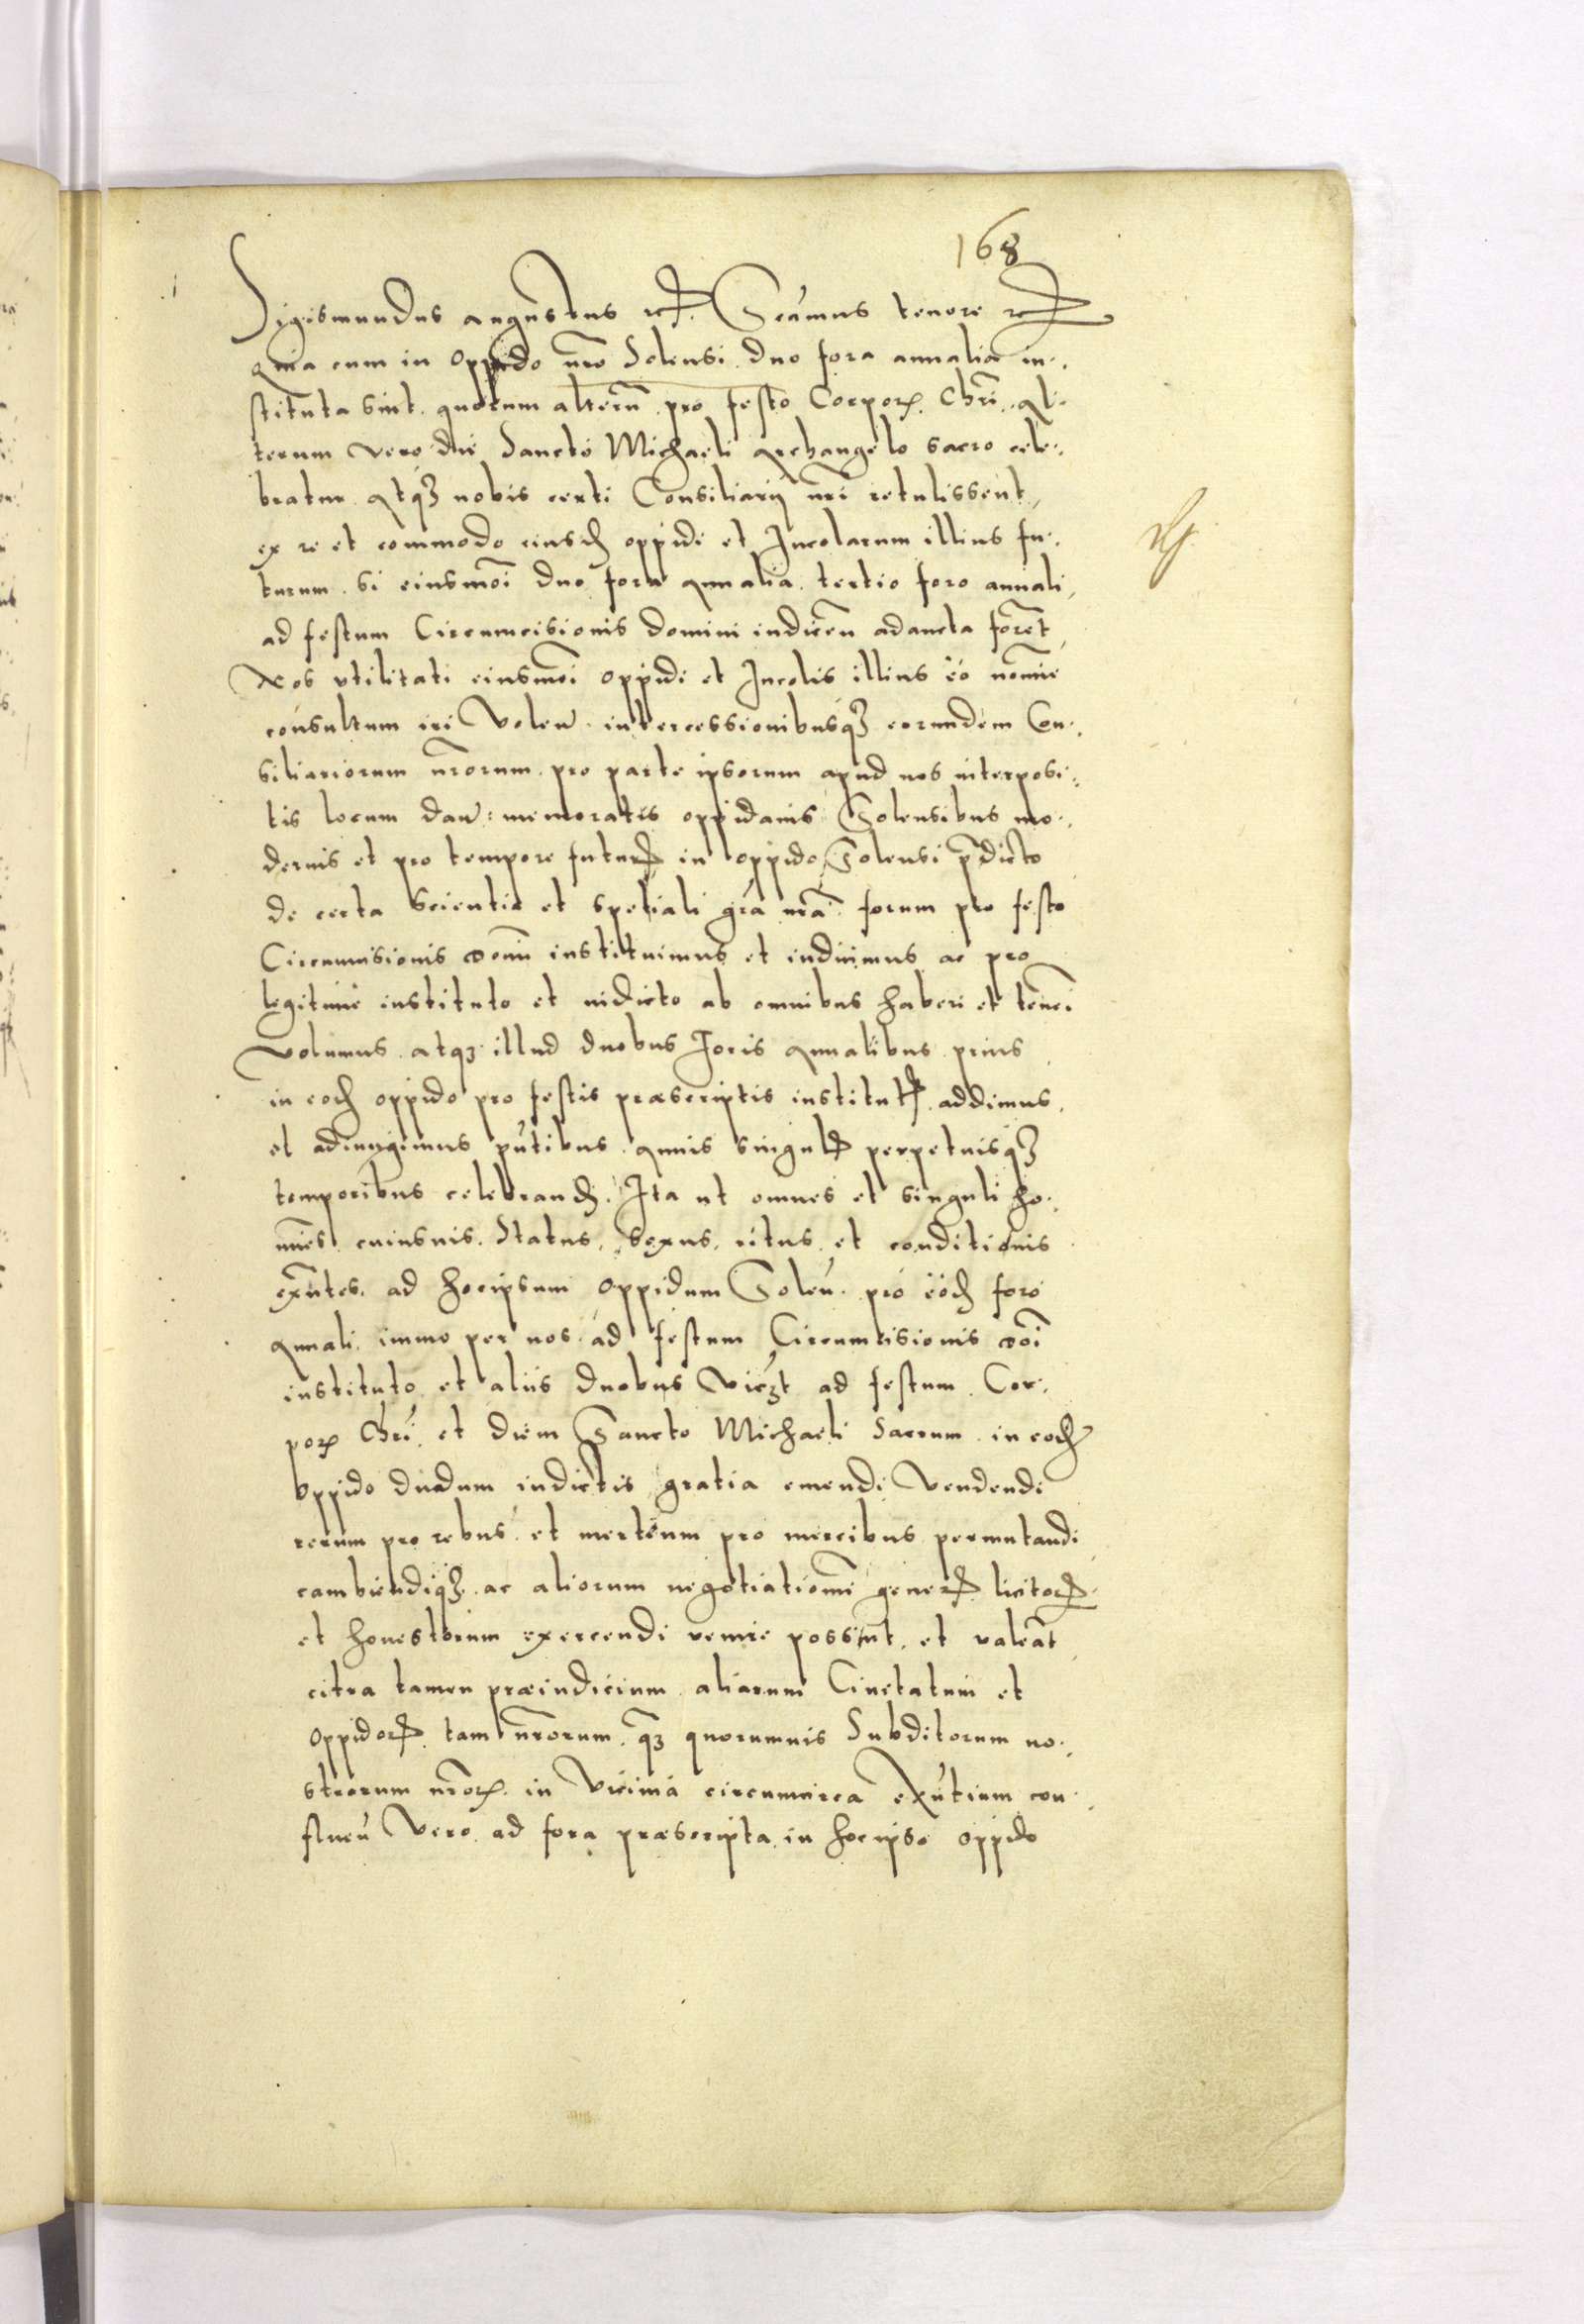 168
Sigismundus augustus etc. Seamus tenore etc
quia cum in oppido nro Solensi duo fora annalia in-
stituta sint quorum alterũ pro festo Corporis Chri, al-
terum vero die Sancto Michaeli archangelo sacro cele-
bratur atq3 nobis certi Consiliarij nri retulissent,
ex re et commodo eiusd oppidi et Incolarum illius fu-
turum si eiusmoi duo fora annalia tertio foro annali,
ad festum Circumcisionis domini indicen adaucta foret
Nos utilitati eiusmoi oppidi et Incolis illius eo nomie
consultum iri Volen intercessionibusq3 eorundem Con-
siliariorum nrorum pro parte ipsorum apud nos interposi-
tis locum dan: memoratis oppidanis Solensibus mo-
dernis et pro tempore futur in oppido Solensi pdicto
de certa scientia et spetiali gra nra forum pro festo
Circumcisionis domi instituimus et indicimus ac pro
legitime instituto et indicto ab omnibus haberi et teneri
volumus atq3 illud duobus Foris annalibus prius
in eod oppido pro festis præscriptis institut addimus
et adiungimus pntibus annis singul perpetuisq3
temporibus celebrand. Ita ut omnes et singuli ho-
mies cuiusuis Status, sexus, ritus et conditionis
exntes ad hocipsum oppidum Solen pro eod foro
annali immo per nos ad festum Circumcisionis doi
instituto et aliis duobus vic3t ad festum Cor-
por Chri et diem Sancto Michaeli Sacrum in eod
oppido dudum indictis gratia emendi vendendi
rerum pro rebus et mertium pro mercibus permutandi
cambiendiq3 ac aliorum negotiationũ gener licitor
et honestorum exercendi venire possint et valeat
citra tamen præiudicium aliarum Ciuitatum et
oppidor tam nrorum q3 quorumuis Subditorum no-
strorum nror in vicinia circumcirca exntium con-
fluen vero ad fora præscripta in hocipso oppido